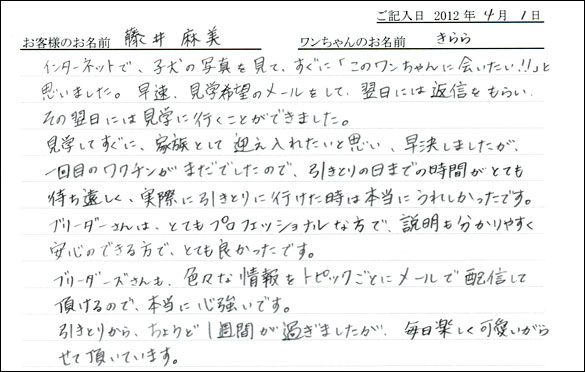 ご記入日 2012年 4月 1日
お客様のお名前 藤井 麻美 ワンちゃんのお名前 きらら
インターネットで、子犬の写真を見て、すぐに「このワンちゃんに会いたい!!」と
思いました。早速、見学希望のメールをして、翌日には返信をもらい、
その翌日には見学に行くことができました。
見学してすぐに、家族として迎え入れたいと思い、早決しましたが、
一回目のワクチンがまだでしたので、引きとりの日までの時間がとても
待ち遠しく、実際に引きとりに行けた時は本当にうれしかったです。
ブリーダーさんは、とてもプロフェッショナルな方で、説明も分かりやすく
安心のできる方で、とても良かったです。
ブリーダーズさんも、色々な情報をトピックごとにメールで配信して
頂けるので、本当に心強いです。
引きとりから、ちょうど1週間が過ぎましたが、毎日楽しく可愛いがら
せて頂いています。